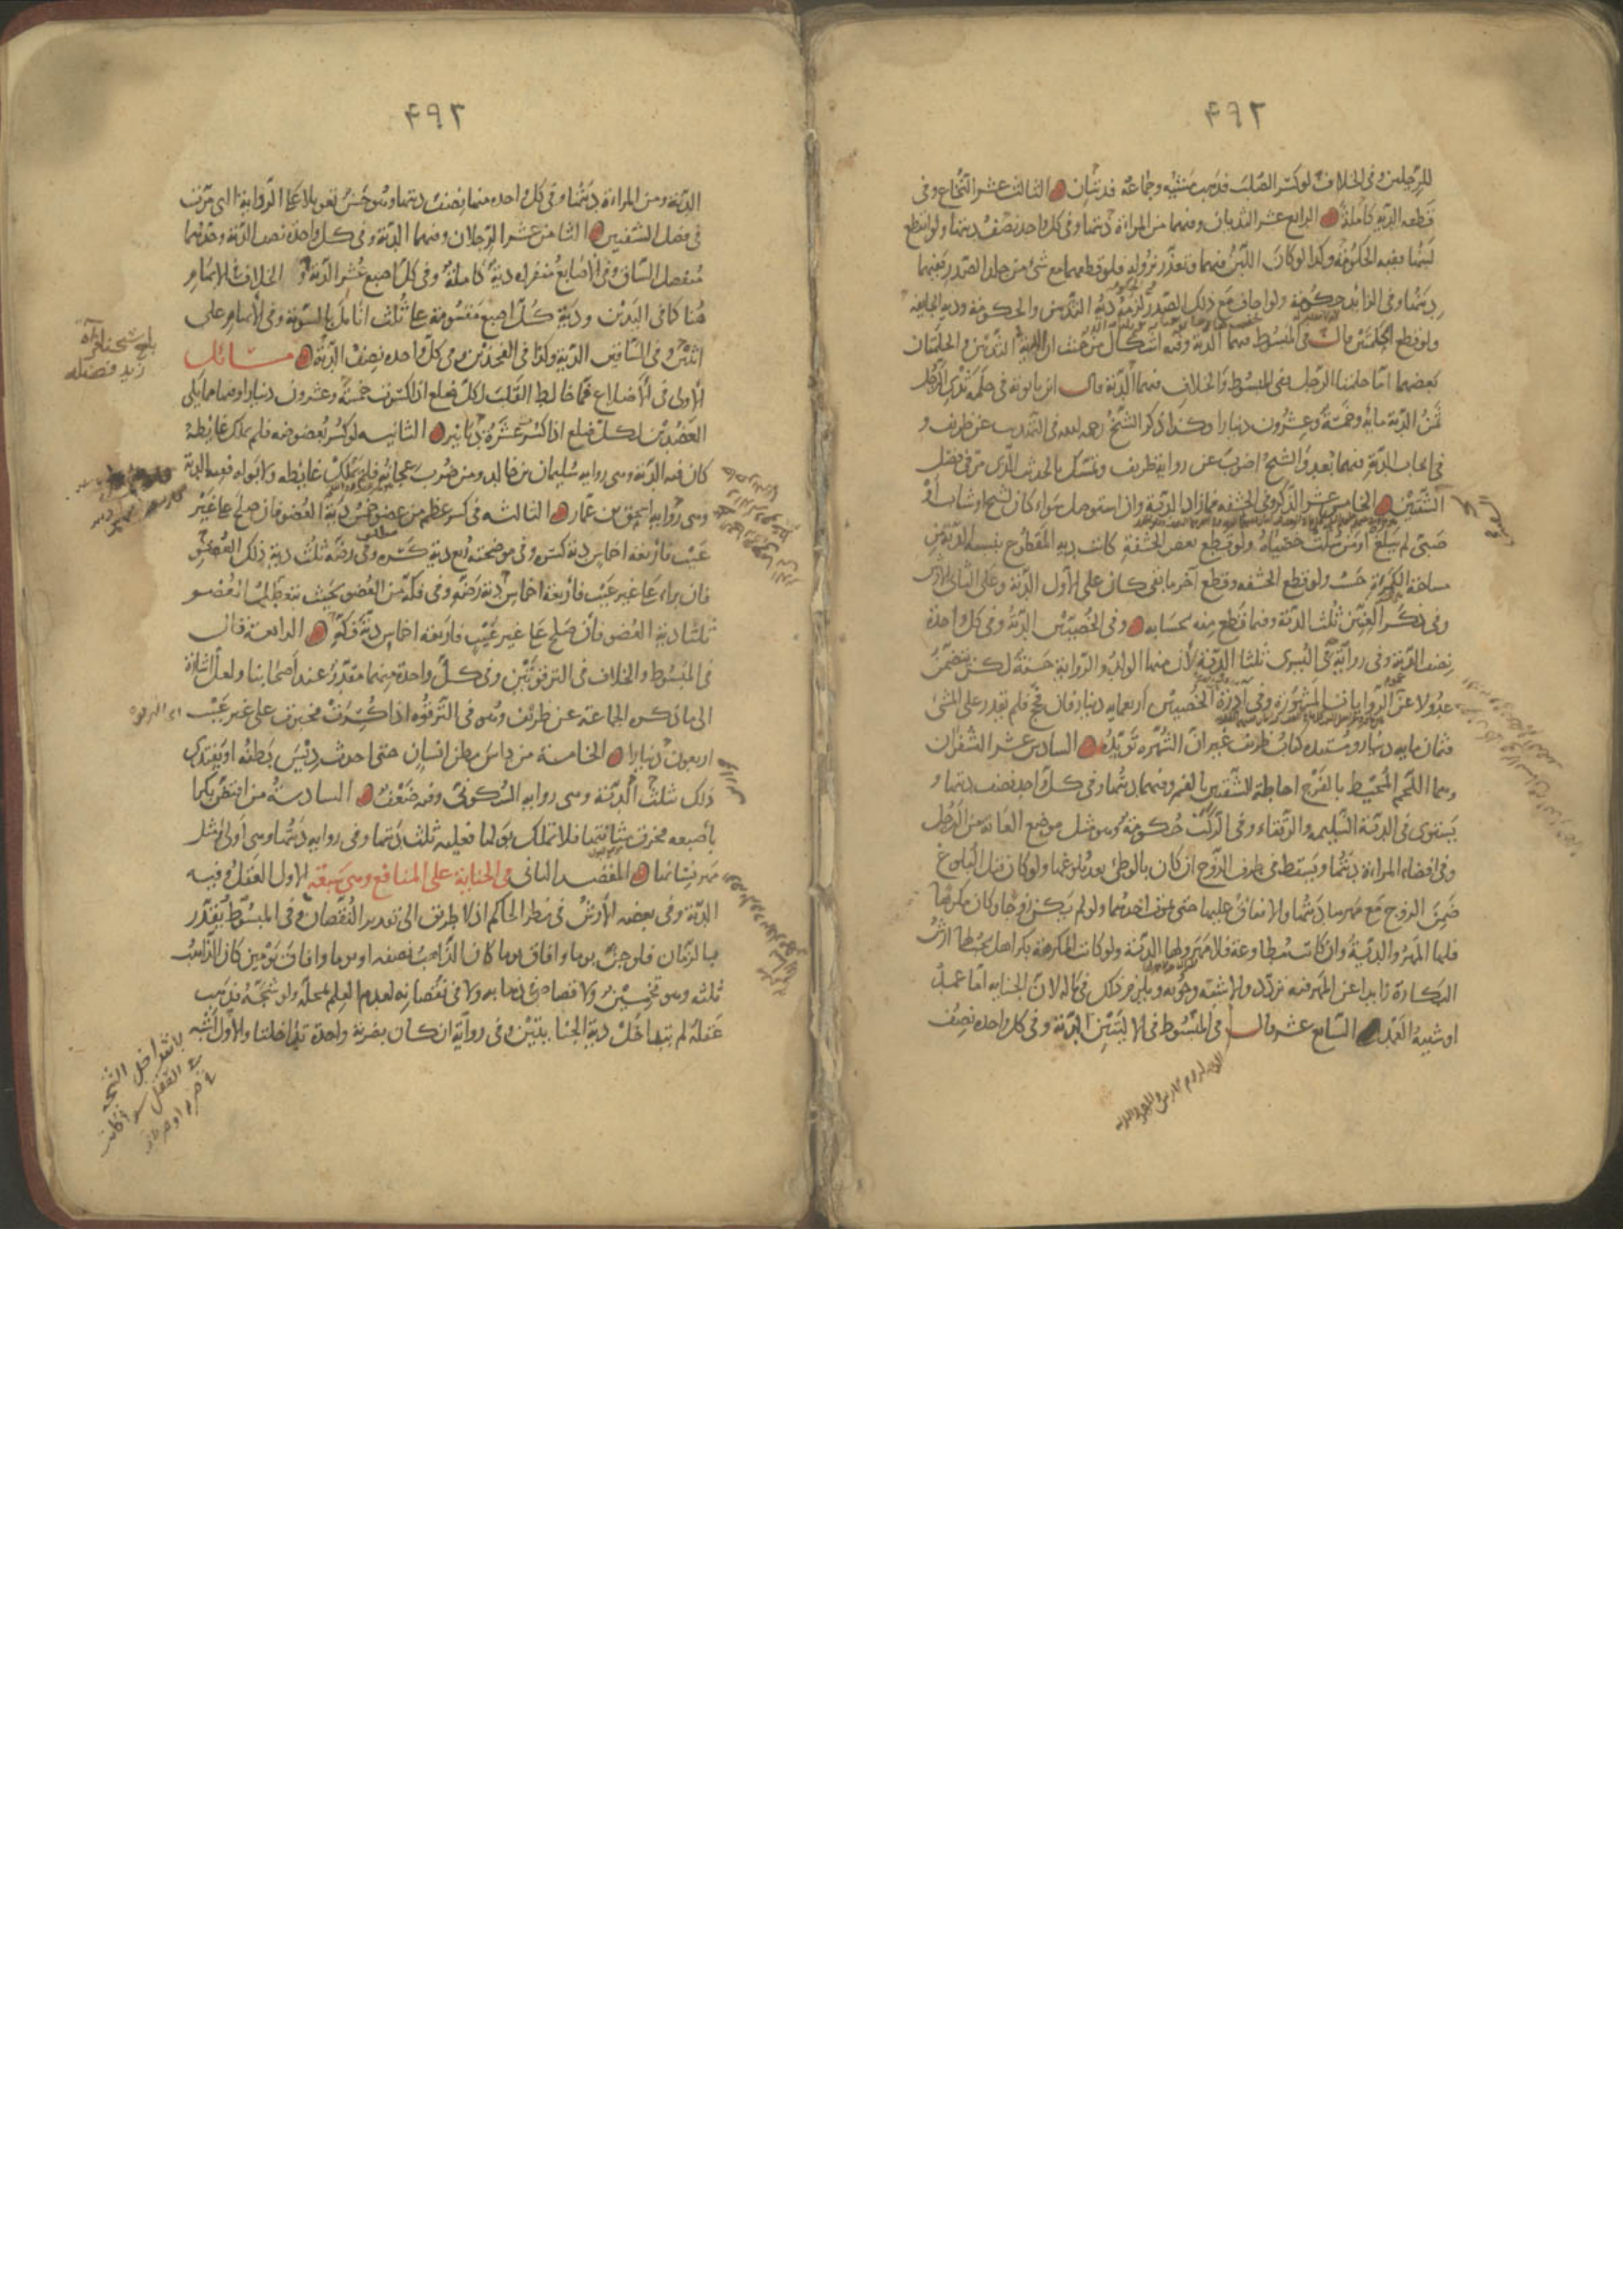 ٤٩٢
للرجلين وفي الخلاف لو كسر الصلب فذهب مشيه وجماعه فديتان الثالث عشر النخاع وفي
قطعه الدية كاملة الرابع عشر الثديان وفيهما من المراة ديتها وفي كل واحد نصف ديتها ولو انقطع
لبنهما ففيه الحكومة وكذا لو كان اللبن فيهما وتعذر نزوله فلو قطعهما مع شئ من جلد الصدر ففيهما
ديتها وفي الزائد حكومة ولو اجاف مع ذلك الصدر لزمه دية الثديين والحكومة ودية الجايفة
ولو قطع الحلمتين قال في المبسوط فيهما الدية وفيه اشكال من حيث ان الدية في الثديين والحلمتان
بعضهما اما حلمتا الرجل ففي المبسوط والخلاف فيهما الدية قال ابن بابويه في حلمة ثدي الرجل
ثمن الدية مائة وخمسة وعشرون دينارا وكذا ذكر الشيخ رحمه الله في التهذيب عن ظريف و
في ايجاب الدية فيهما بعد والشيخ اضرب عن رواية ظريف وتمسك بالحديث الذي مر في فصل
الشفتين الخامس عشر الذكر وفي الحشفة فما زاد الدية وان استوصل سواء كان لشيخ او شاب او
صبي لم يبلغ او من سلت خصيتاه ولو قطع بعض الحشفة كانت دية المقطوع بنسبة الدية من
مساحة الكمرة حسب ولو قطع الحشفة وقطع آخر ما بقي كان على الاول الدية وعلى الثاني الارش
وفي ذكر العنين ثلث الدية وفيما قطع منه بحسابه وفي الخصيتين الدية وفي كل واحدة
نصف الدية وفي رواية في اليسرى ثلثا الدية لان منها الولد والرواية حسنة لكن تتضمن
عدولا عن عموم الروايات المشهورة وفي ادرة الخصيتين اربعمايه دينار فان فحج فلم يقدر على المشي
فثمان مايه دينار ومستنده كتاب ظريف غير ان الشهرة تؤيده السادس عشر الشفران
وهما اللحم المحيط بالفرج احاطة الشفتين بالفم وفيهما ديتها وفي كل واحد نصف ديتها و
يستوى في الدية السليمه والرتقاء وفي الركب حكومة وهو مثل موضع العانه من الرجل
وفي افضاء المراة ديتها ويسقط في طرف الزوج ان كان بالوطئ بعد بلوغها ولو كان قبل البلوغ
ضمن الزوج مع مهرها ديتها والانفاق عليها حتى يموت احدهما ولو لم يكن زوجا وكان مكرها
فلها المهر والدية وان كانت مطاوعة فلا مهر ولها الدية ولو كانت المكرهة بكرا هل يجب لها ارش
البكارة زايدا عن المهر فيه تردد والاشبه وجوبه ويلزم ذلك في ماله لان الجناية اما عمد
او شبيه العمد السابع عشر قال في المبسوط في الاليتين الدية وفي كل واحده نصف
٤٩٢
الدية ومن المراة ديتها وفي كل واحده منهما نصف ديتها وهو حسن تعويلا على الرواية التي مرت
في فصل الشفتين الثامن عشر الرجلان وفيهما الدية وفي كل واحدة نصف الدية وحدهما
مفصل الساق وفي الاصابع منفرده دية كاملة وفي كل اصبع عشر الدية و الخلاف في الابهام
هنا كما في اليدين ودية كل اصبع مقسومة على ثلث انامل بالسوية وفي الابهام على
اثنتين وفي الساقين الدية وكذا في الفخذين وفي كل واحده نصف الدية مسائل
الاولى في الاضلاع فما خالط القلب لكل ضلع اذا كسرت خمسة وعشرون دينارا وفيها مما يلي
العضدين لكل ضلع اذا كسر عشرة دنانير الثانيه لو كسر بعصوصه فلم يملك غايطه
كان فيه الدية وهي رواية سليمان بن خالد ومن ضرب عجانه فلم يملك غايطه ولا بوله ففيه الدية
وهي رواية اسحق بن عمار الثالثه في كسر عظم من عضو خمس دية العضو فان صلح على غير
عيب فاربعة اخماس دية كسره وفي موضحته ربع دية كسره وفي رضه ثلث دية ذلك العضو
فان برا على غير عيب فاربعة اخماس دية رضه وفي فكه من العضو بحيث يتعطل العضو
ثلثا دية العضو فان صلح على غير عيب فاربعة اخماس دية فكه الرابعة قال
في المبسوط والخلاف في الترقوتين وفي كل واحدة منهما مقدر عند اصحابنا ولعله اشارة
الى ما ذكره الجماعة عن ظريف وهو في الترقوه اذا كسرت فجبرت على غير عيب
اربعون دينارا الخامسة من داس بطن انسان حتى احدث ديس بطنه او يفتدي
ذلك بثلث الدية وهي رواية السكوني وفيه ضعف السادسة من افتض بكرا
باصبعه فخرق مثانتها فلا تملك بولها فعليه ثلث ديتها وفي رواية ديتها وهي اولى ومثل
مهر نسائها المقصد الثاني في الجناية على المنافع وهي سبعة الاول العقل وفيه
الدية وفي بعضه الارش في نظر الحاكم اذ لا طريق الى تقدير النقصان وفي المبسوط يقدر
بالزمان فلو جن يوما وافاق يوما كان الذاهب نصفه او يوما وافاق يومين كان الذاهب
ثلثه وهو تخمين ولا قصاص في ذهابه ولا في نقصانه لعدم العلم بمحله ولو شجه فذهب
عقله لم يتداخل دية الجنايتين وفي رواية ان كان بضربة واحدة تداخلتا والاول اشبه